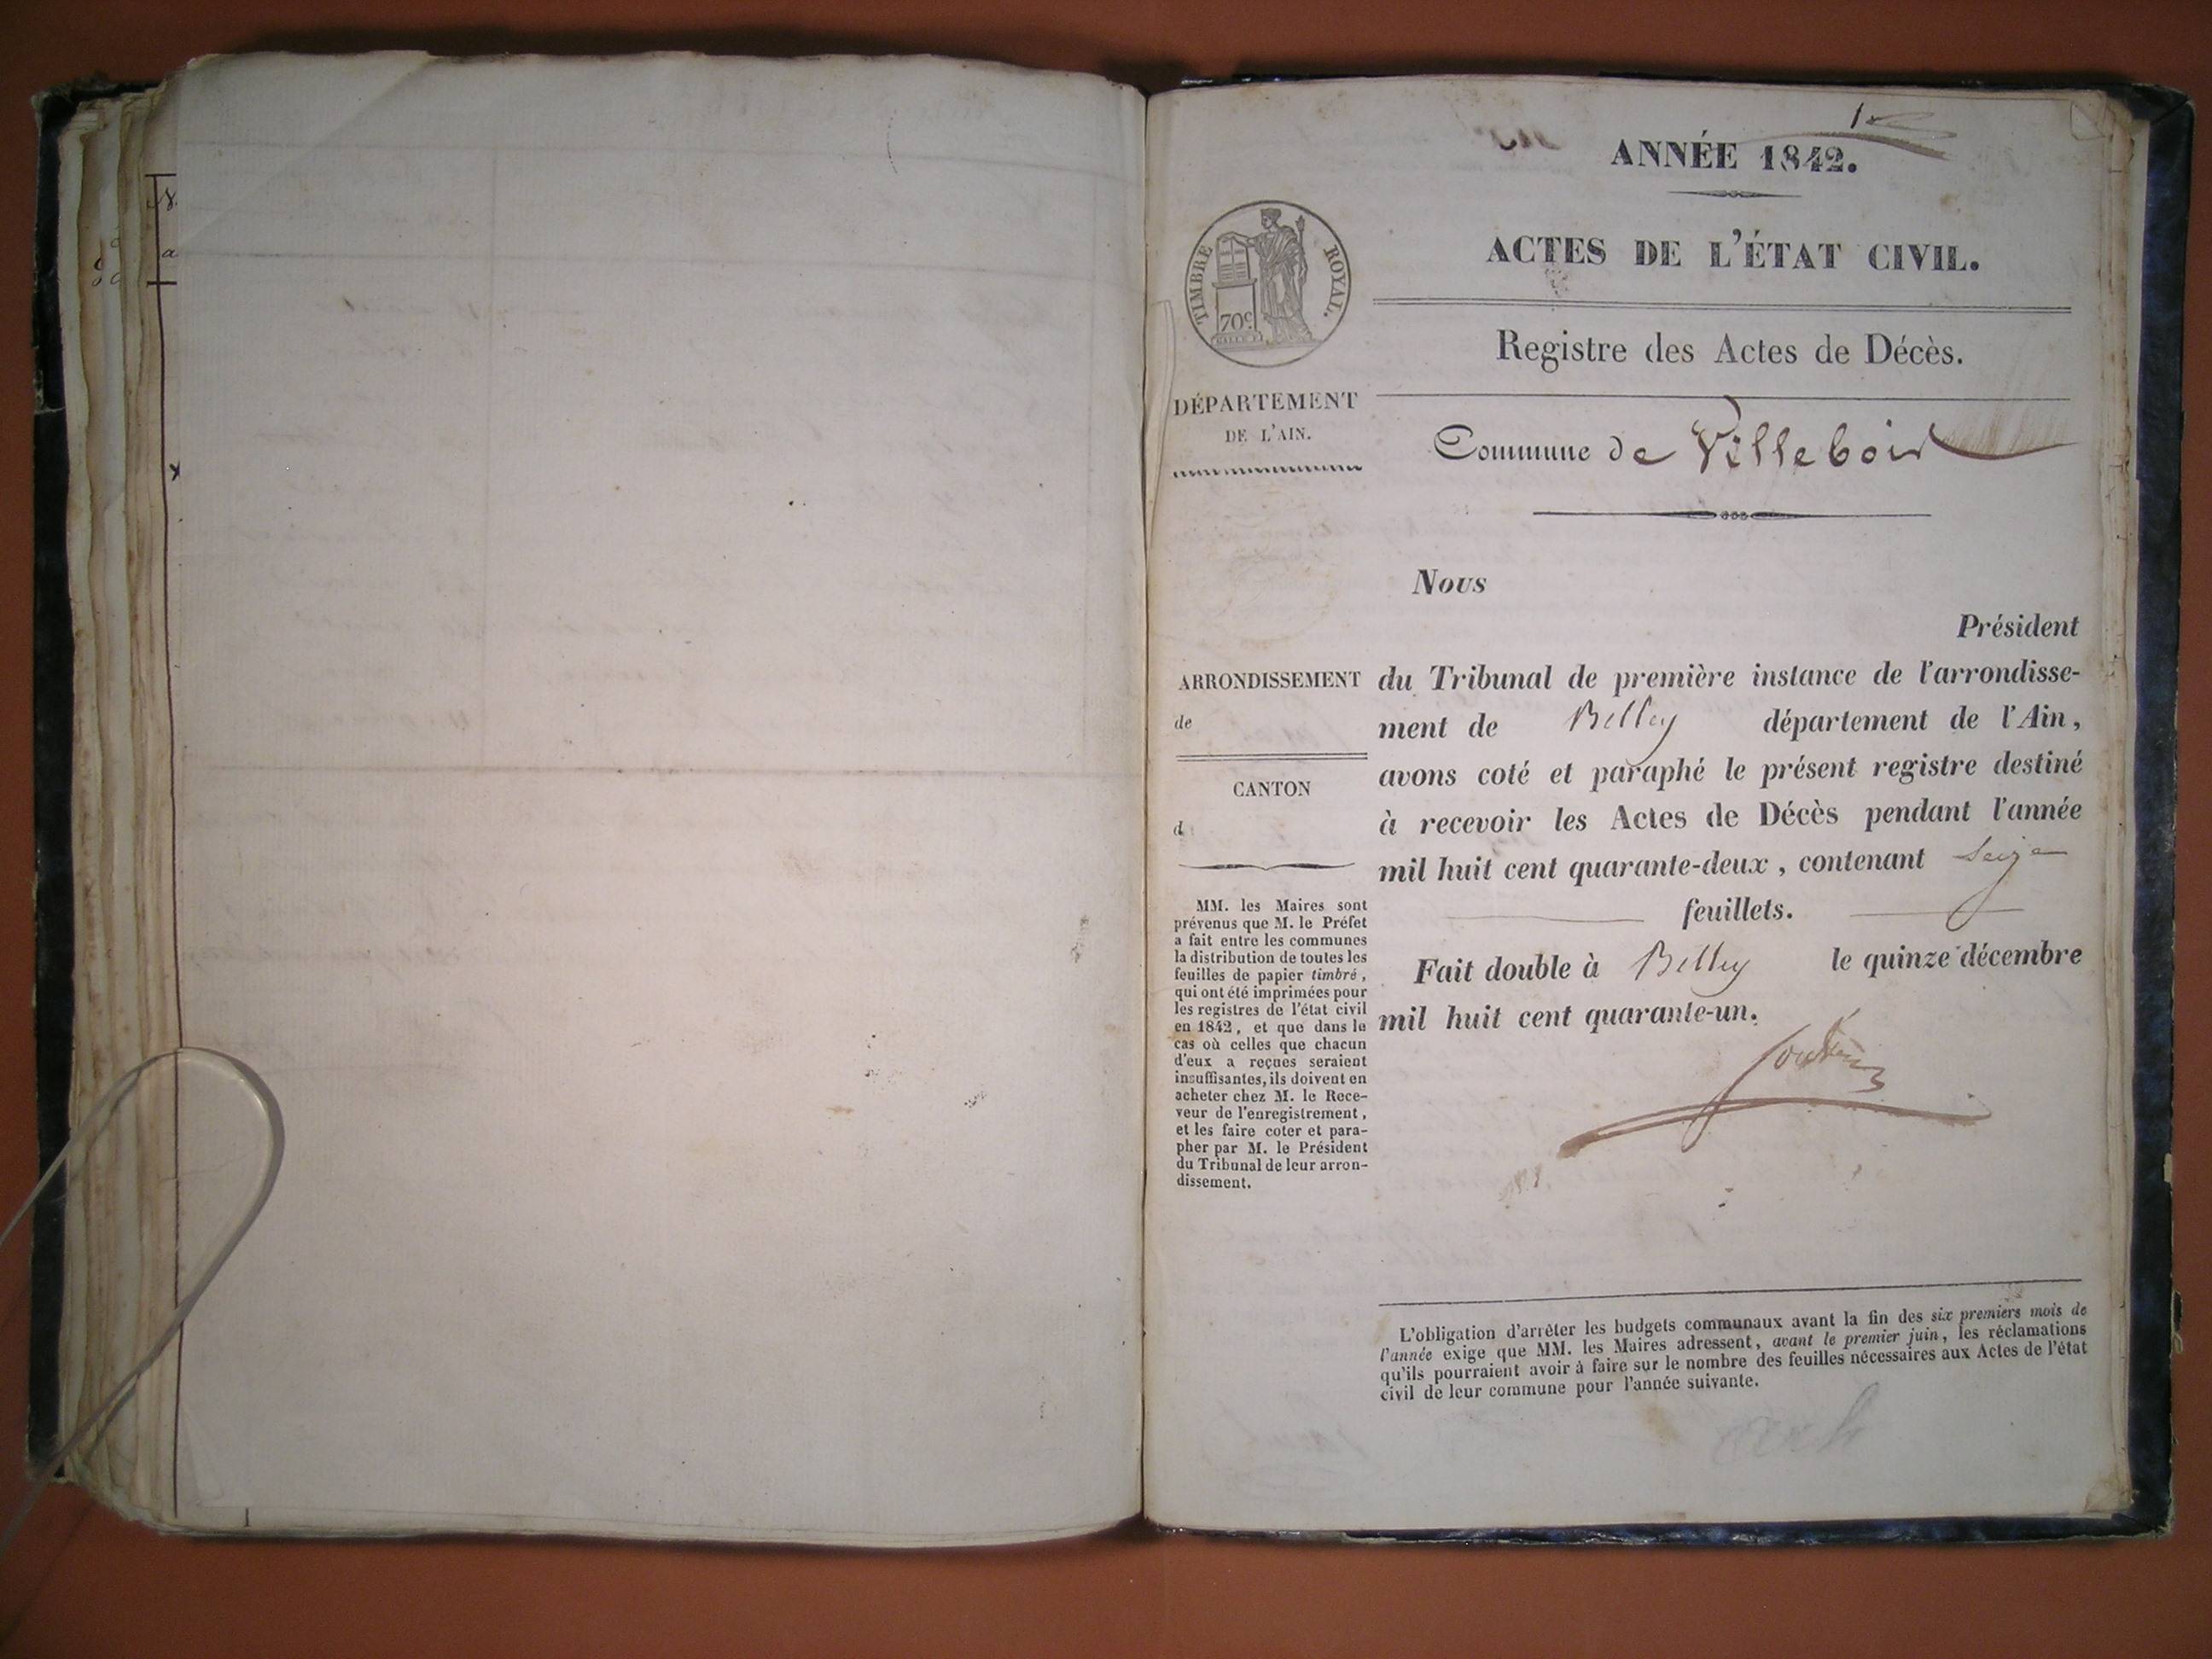 ANNÉE 1842.
ACTES DE L'ÉTAT CIVIL.
TIMBRE ROYAL.
70c
Registre des Actes de Décès.
DÉPARTEMENT
DE L'AIN.
Commune de Villebois
Nous
Président
ARRONDISSEMENT
de
du Tribunal de première instance de l'arrondisse-
ment de Belley département de l'Ain,
avons coté et paraphé le présent registre destiné
à recevoir les Actes de Décès pendant l'année
mil huit cent quarante-deux, contenant Seize
feuillets.
Fait double à Belley le quinze décembre
mil huit cent quarante-un.
CANTON
d
MM. les Maires sont
prévenus que M. le Préfet
a fait entre les communes
la distribution de toutes les
feuilles de papier timbré,
qui ont été imprimées pour
les registres de l'état civil
en 1842, et que dans le
cas où celles que chacun
d'eux a reçues seraient
insuffisantes, ils doivent en
acheter chez M. le Rece-
veur de l'enregistrement,
et les faire coter et para-
pher par M. le Président
du Tribunal de leur arron-
dissement.
L'obligation d'arrêter les budgets communaux avant la fin des six premiers mois de
l'année exige que MM. les Maires adressent, avant le premier juin, les réclamations
qu'ils pourraient avoir à faire sur le nombre des feuilles nécessaires aux Actes de l'état
civil de leur commune pour l'année suivante.